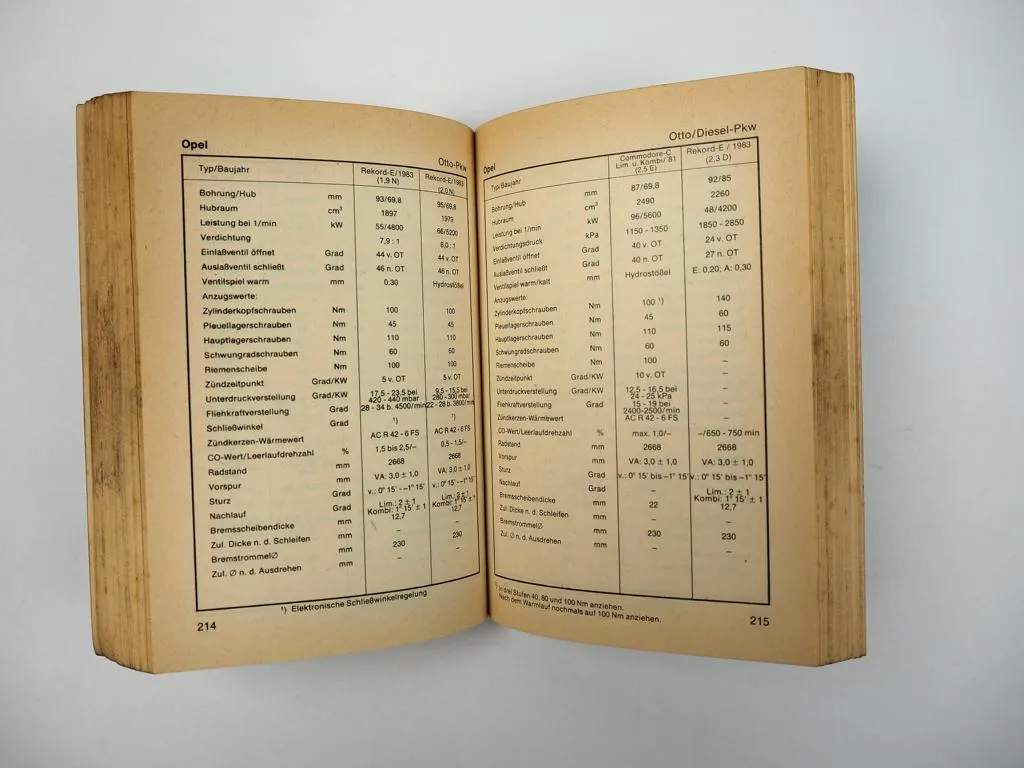 Opel
Otto-Pkw
Typ/Baujahr Rekord-E/1983 (1,9 N) Rekord-E/1983 (2,0 N)
Bohrung/Hub mm 93/69,8 95/69,8
Hubraum cm³ 1897 1979
Leistung bei 1/min kW 55/4800 66/5200
Verdichtung 7,9 : 1 8,0 : 1
Einlaßventil öffnet Grad 44 v. OT 44 v. OT
Auslaßventil schließt Grad 46 n. OT 46 n. OT
Ventilspiel warm mm 0,30 Hydrostößel
Anzugswerte:
Zylinderkopfschrauben Nm 100 100
Pleuellagerschrauben Nm 45 45
Hauptlagerschrauben Nm 110 110
Schwungradschrauben Nm 60 60
Riemenscheibe Nm 100 100
Zündzeitpunkt Grad/KW 5 v. OT 5 v. OT
Unterdruckverstellung Grad/KW 17,5 - 23,5 bei 420 - 440 mbar 9,5 - 15,5 bei 280 - 300 mbar
Fliehkraftverstellung Grad 28 - 34 b. 4500/min 22 - 28 b. 3800/min
Schließwinkel Grad ¹) ¹)
Zündkerzen-Wärmewert AC R 42 - 6 FS AC R 42 - 6 FS
CO-Wert/Leerlaufdrehzahl % 1,5 bis 2,5/– 0,5 - 1,5/–
Radstand mm 2668 2668
Vorspur mm VA: 3,0 ± 1,0 VA: 3,0 ± 1,0
Sturz Grad v.: 0° 15' - –1° 15' v.: 0° 15' - –1° 15'
Nachlauf Grad Lim.: 2 ± 1 Kombi: 1° 15' ± 1 Lim.: 2 ± 1 Kombi: 1° 15' ± 1
Bremsscheibendicke mm 12,7 12,7
Zul. Dicke n. d. Schleifen mm – –
Bremstrommel∅ mm 230 230
Zul. ∅ n. d. Ausdrehen mm – –
¹) Elektronische Schließwinkelregelung
214
Opel
Otto/Diesel-Pkw
Typ/Baujahr Commodore-C Lim. u. Kombi/'81 (2,5 E) Rekord-E / 1983 (2,3 D)
Bohrung/Hub mm 87/69,8 92/85
Hubraum cm³ 2490 2260
Leistung bei 1/min kW 96/5600 48/4200
Verdichtungsdruck kPa 1150 - 1350 1850 - 2850
Einlaßventil öffnet Grad 40 v. OT 24 v. OT
Auslaßventil schließt Grad 40 n. OT 27 n. OT
Ventilspiel warm/kalt mm Hydrostößel E: 0,20; A: 0,30
Anzugswerte:
Zylinderkopfschrauben Nm 100 ¹) 140
Pleuellagerschrauben Nm 45 60
Hauptlagerschrauben Nm 110 115
Schwungradschrauben Nm 60 60
Riemenscheibe Nm 100 –
Zündzeitpunkt Grad/KW 10 v. OT –
Unterdruckverstellung Grad/KW 12,5 - 16,5 bei 24 - 25 kPa –
Fliehkraftverstellung Grad/KW 15 - 19 bei 2400-2500/min –
Zündkerzen-Wärmewert AC R 42 - 6 FS –
CO-Wert/Leerlaufdrehzahl % max. 1,0/– –/650 - 750 min
Radstand mm 2668 2668
Vorspur mm VA: 3,0 ± 1,0 VA: 3,0 ± 1,0
Sturz Grad v.: 0° 15' bis –1° 15' v.: 0° 15' bis –1° 15'
Nachlauf Grad – Lim.: 2 ± 1 Kombi: 1° 15' ± 1
Bremsscheibendicke mm 22 12,7
Zul. Dicke n. d. Schleifen mm – –
Bremstrommel∅ mm 230 230
Zul. ∅ n. d. Ausdrehen mm – –
¹) In drei Stufen 40, 80 und 100 Nm anziehen.
Nach dem Warmlauf nochmals auf 100 Nm anziehen.
215